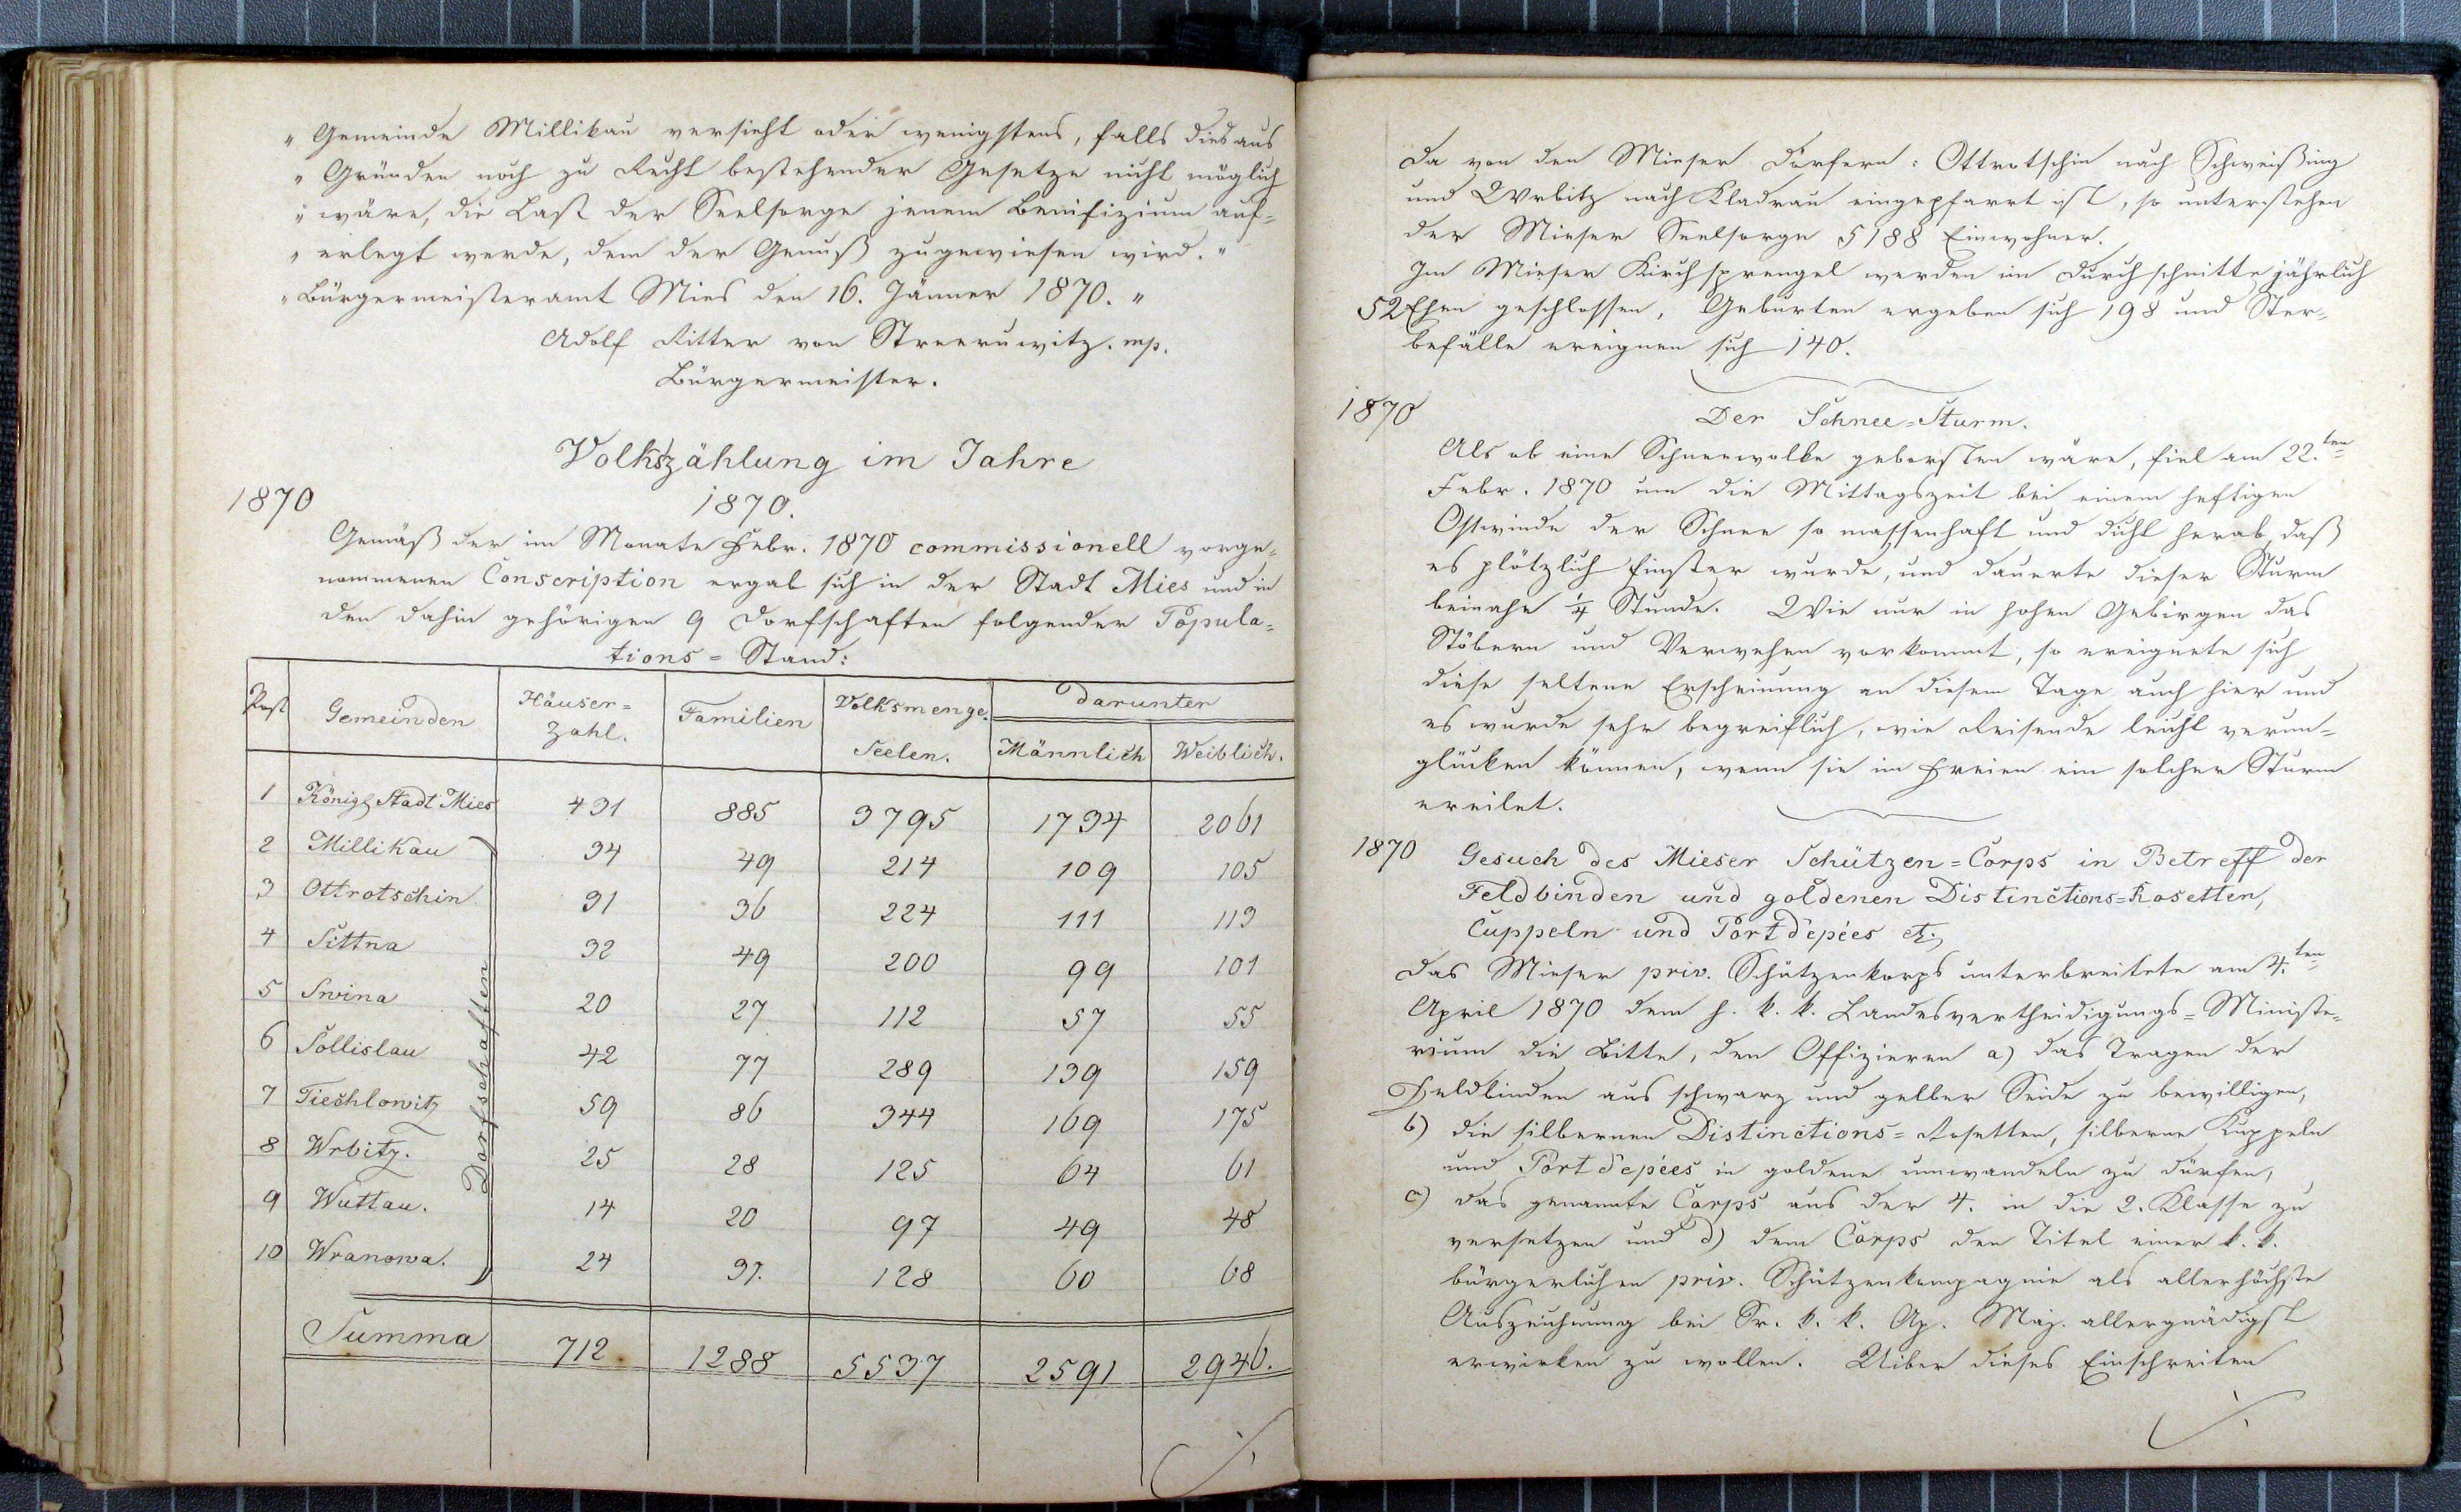 „ Gemeinde Millikau versieht oder wenigstens, falls dies aus
„ Gründen noch zu Recht bestehender Gesetze nicht möglich
„ wäre, die Last der Seelsorge jenem Benifizium auf-
„ erlegt werde, dem der Genuß zugewiesen wird. “
„ Bürgermeisteramt Mies den 16. Jänner 1870. “
Adolf Ritter von Streeruwitz. mp.
Bürgermeister.
Volkszählung im Jahre
1870
1870.
Gemäß der im Monate Febr. 1870 commissionell vorge-
nommenen Conscription ergab sich in der Stadt Mies und in
den dahin gehörigen 9 Dorfschaften folgender Popula-
tions = Stand:
Post Gemeinden Häuser= Zahl. Familien Volksmenge. Seelen. Darunter Männlich Weiblich.
1 Königl Stadt Mies 431 885 3795 1734 2061
2 Millikau 34 49 214 109 105
3 Ottrotschin 31 36 224 111 113
4 Sittna 32 49 200 99 101
5 Swina 20 27 112 57 55
6 Sollislau 42 77 289 139 159
7 Tiechlowitz 59 86 344 169 175
8 Wrbitz. 25 28 125 64 61
9 Wuttau. 14 20 97 49 48
10 Wranowa. 24 37. 128 60 68
Dorfschaften
Summa 712 1288 5537 2591 2946.
Da von den Mieser Dörfern: Ottrotschin nach Schweißing
und Wrbitz nach Kladrau eingepfarrt ist, so unterstehen
der Mieser Seelsorge 5188 Einwohner.
Im Mieser Kirchsprengel werden im Durchschnitte jährlich
52 Ehen geschlossen, Geburten ergeben sich 198 und Ster-
befälle ereignen sich 140.
1870
Der Schnee=Sturm.
Als ob eine Schneewolke geborsten wäre, fiel am 22.ten
Febr. 1870 um die Mittagszeit bei einem heftigen
Ostwinde der Schnee so massenhaft und dicht herab, daß
es plötzlich finster wurde, und dauerte dieser Sturm
beinahe ¼ Stunde. Wie nur in hohen Gebirgen das
Stöbern und Verwehen vorkommt, so ereignete sich
diese seltene Erscheinung an diesem Tage auch hier und
es wurde sehr begreiflich, wie Reisende leicht verun-
glücken können, wenn sie im Freien ein solcher Sturm
ereilet.
1870 Gesuch des Mieser Schützen=Corps in Betreff der
Feldbinden und goldenen Distinctions=Rosetten,
Cuppeln und Port d'epées etz.
Das Mieser priv. Schützenkorps unterbreitete am 4.ten
April 1870 dem h. k. k. Landesvertheidigungs=Ministe-
rium die Bitte, den Offizieren a) das Tragen der
Feldbinden aus schwarz und gelber Seide zu bewilligen,
b) die silbernen Distinctions=Rosetten, silberne Kuppeln
und Port d'epées in goldene umwandeln zu dürfen,
c) das genannte Corps aus der 4. in die 2. Klasse zu
versetzen und d) dem Corps den Titel einer k. k.
bürgerlichen priv. Schützenkompagnie als allerhöchste
Auszeichnung bei Sr. k. k. Ap. Maj. allergnädigst
erwirken zu wollen. Uiber dieses Einschreiten